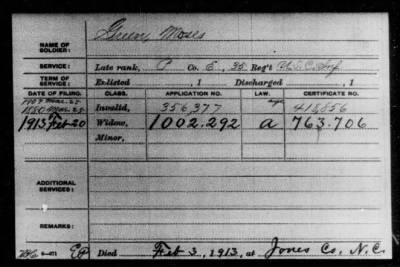 Green, Moses
NAME OF SOLDIER:
SERVICE: Late rank, P Co. E, 35 Reg't U.S.C. Inf.
TERM OF SERVICE: Enlisted , 1 Discharged , 1
DATE OF FILING. CLASS. APPLICATION NO. LAW. CERTIFICATE NO.
1880 Mar. 25 Invalid, 356,377
1913 Feb 20 Widow, 1002.292 a 763.706
Minor,
ADDITIONAL SERVICES:
REMARKS:
6-071 Died Feb 3, 1913, at Jones Co. N.C.